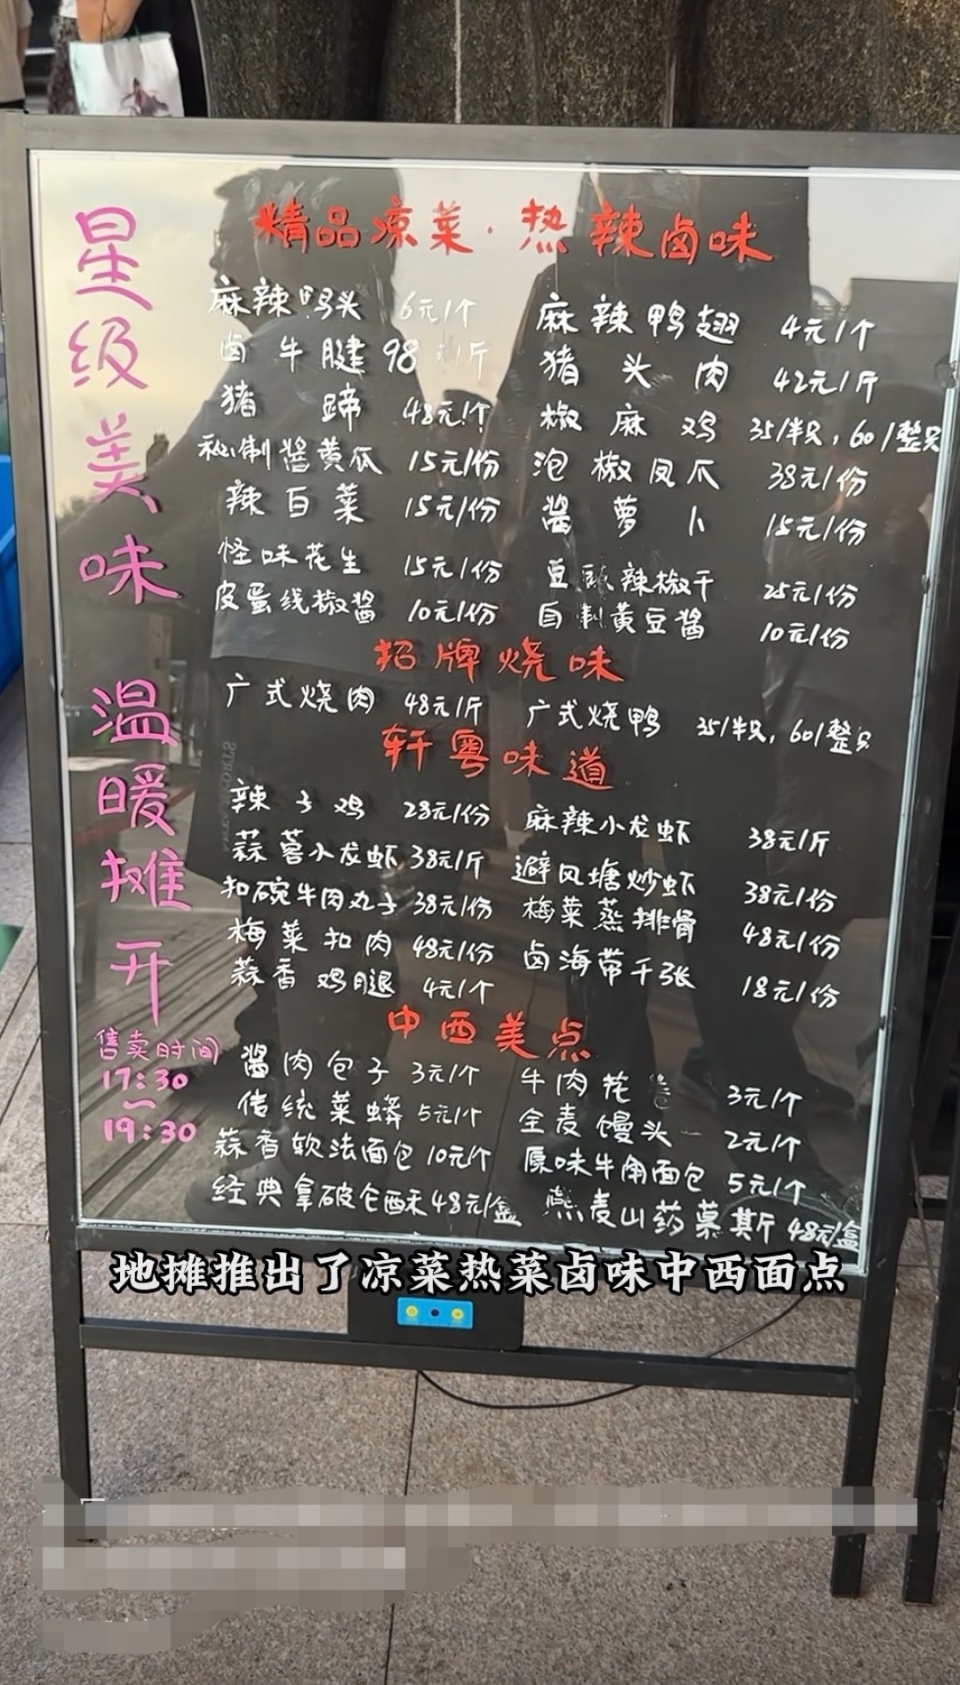 星级美味 温暖摊开
售卖时间
17:30
~
19:30
精品凉菜·热辣卤味
麻辣鸭头 6元/个 麻辣鸭翅 4元/个
卤牛腱 98元/斤 猪头肉 42元/斤
猪蹄 48元/个 椒麻鸡 35/半只，60/整只
秘制酱黄瓜 15元/份 泡椒凤爪 38元/份
辣白菜 15元/份 酱萝卜 15元/份
怪味花生 15元/份 豆豉辣椒干 25元/份
皮蛋线椒酱 10元/份 自制黄豆酱 10元/份
招牌烧味
广式烧肉 48元/斤 广式烧鸭 35/半只，60/整只
轩粤味道
辣子鸡 28元/份 麻辣小龙虾 38元/斤
蒜蓉小龙虾 38元/斤 避风塘炒虾 38元/份
扣碗牛肉丸子 38元/份 梅菜蒸排骨 48元/份
梅菜扣肉 48元/份 卤海带千张 18元/份
蒜香鸡腿 4元/个
中西美点
酱肉包子 3元/个 牛肉花卷 3元/个
传统菜蟒 5元/个 全麦馒头 2元/个
蒜香软法面包 10元/个 原味牛角面包 5元/个
经典拿破仑酥 48元/盒 燕麦山药慕斯 48元/盒
地摊推出了凉菜热菜卤味中西面点